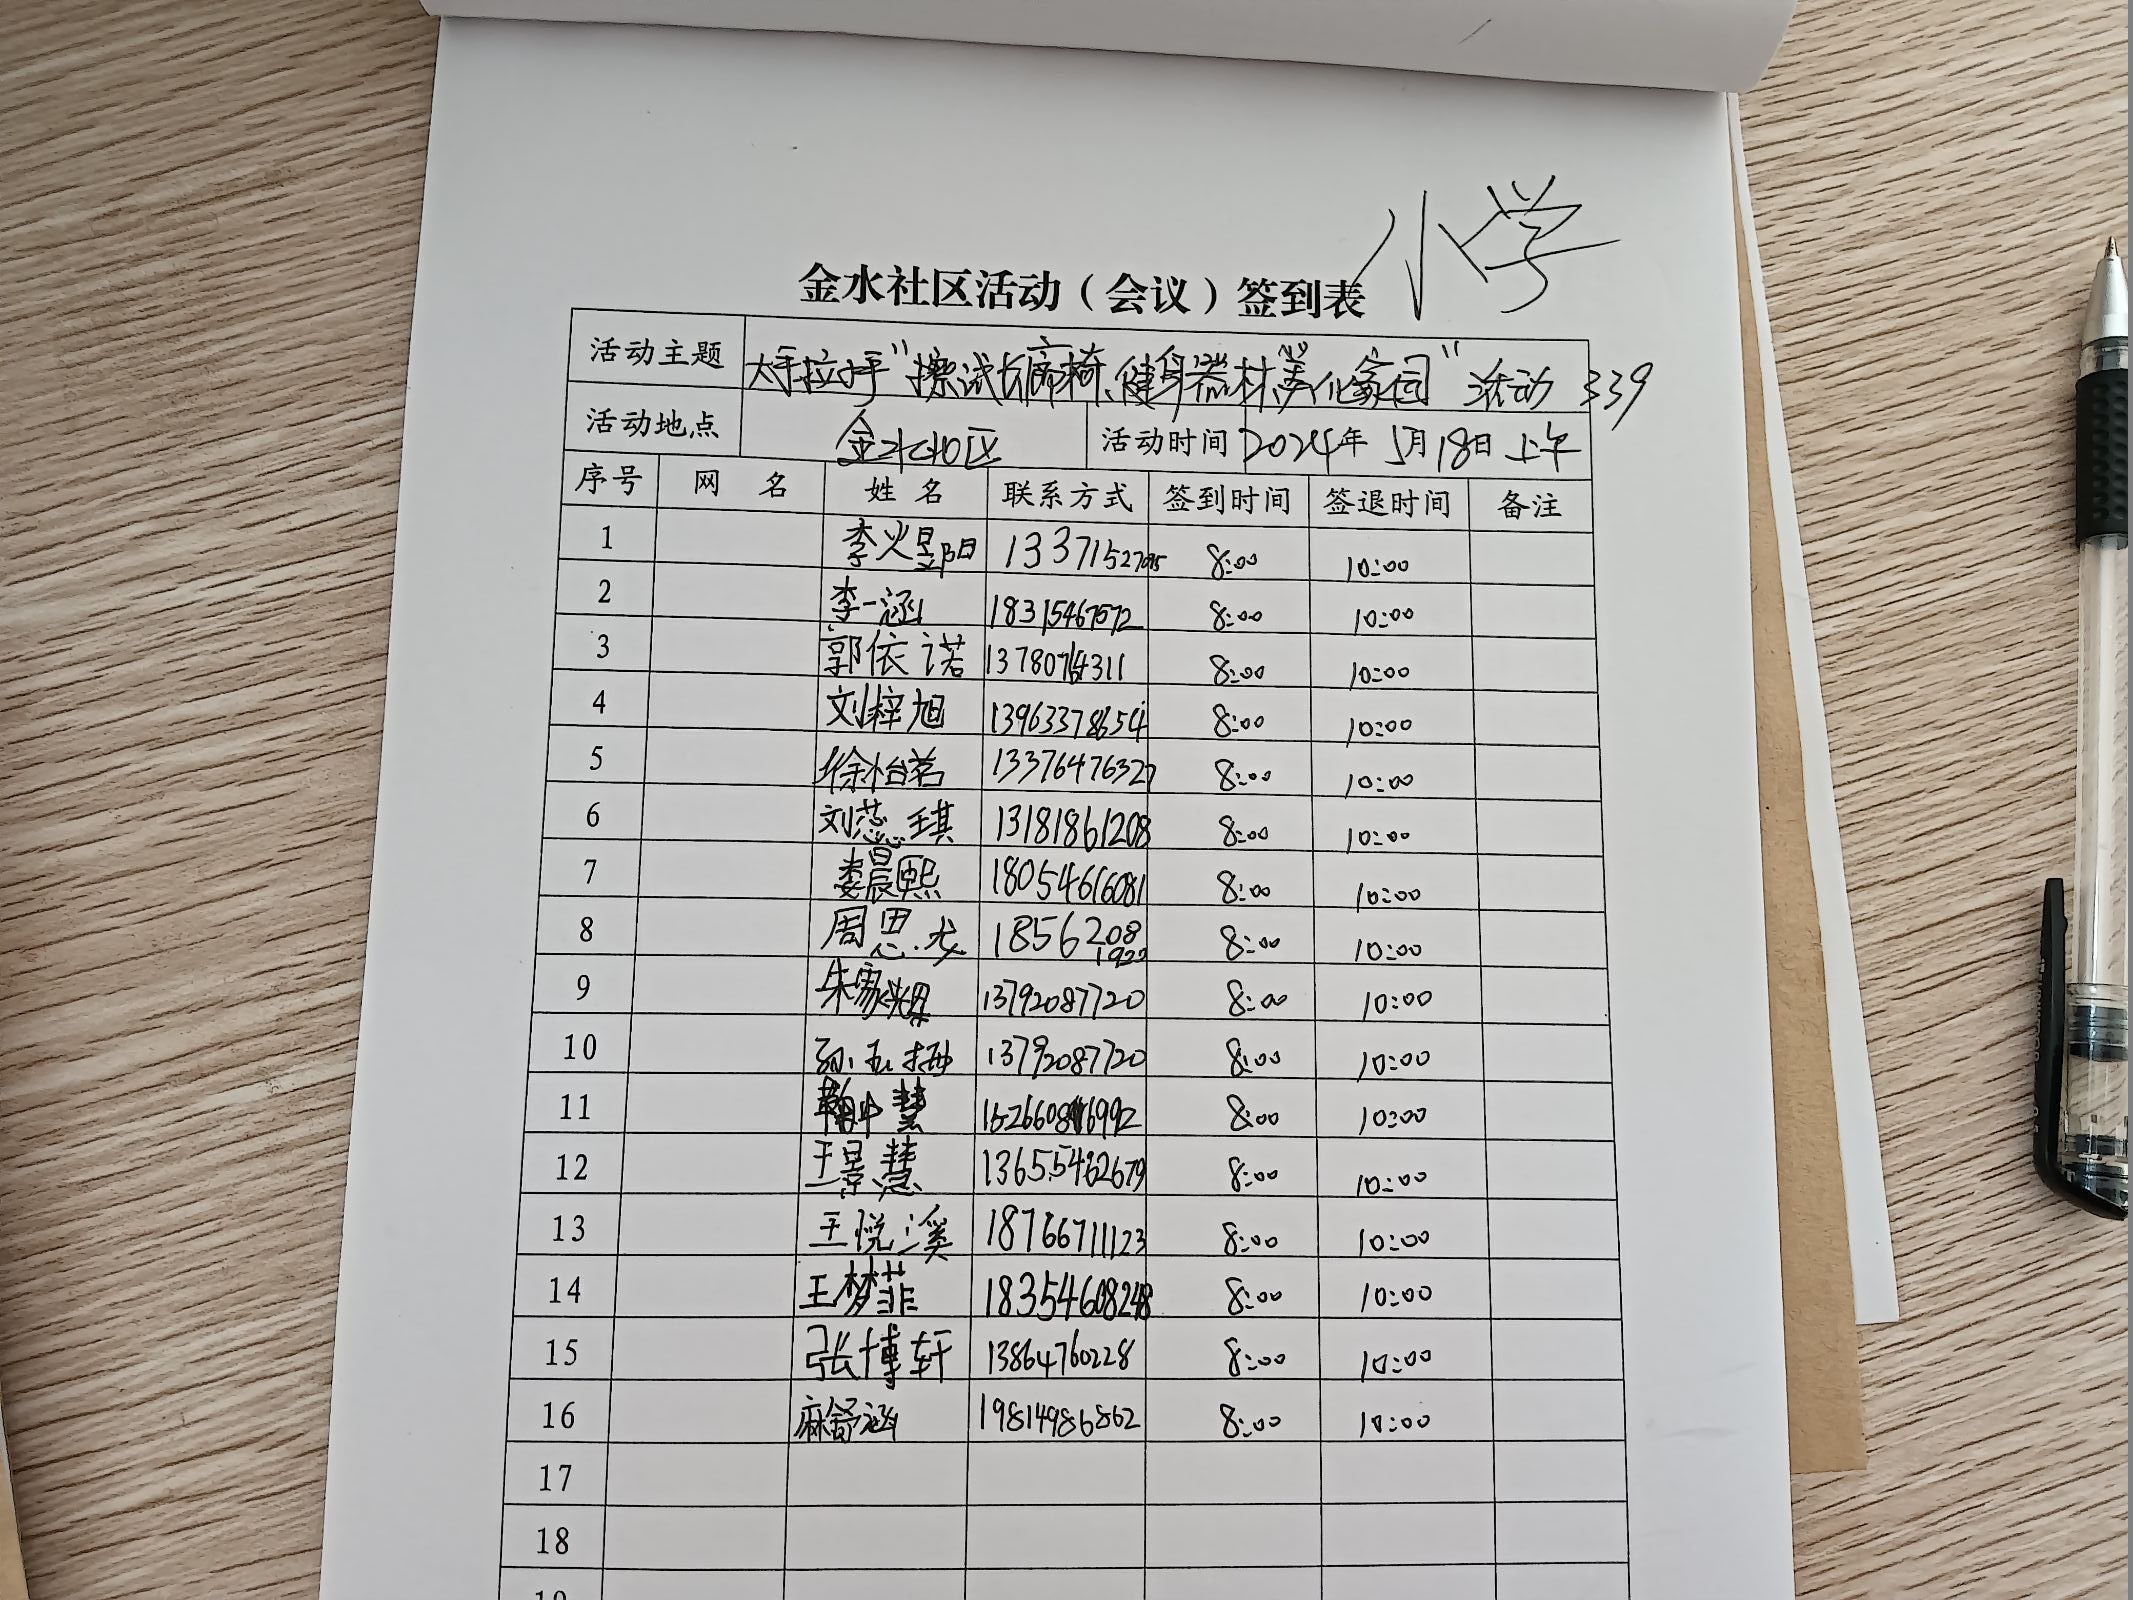 小学
金水社区活动（会议）签到表
活动主题 大手拉小手"擦试长廊椅、健身器材,美化家园"活动 339
活动地点 金水社区 活动时间 2024年5月18日上午
序号 网 名 姓 名 联系方式 签到时间 签退时间 备注
1 李火昱阳 13371527095 8:00 10:00
2 李一涵 18315467572 8:00 10:00
3 郭依诺 8:00 10:00
4 刘梓旭 13963378654 8:00 10:00
5 徐怡茗 13376476327 8:00 10:00
6 刘蕊琪 13181861208 8:00 10:00
7 娄晨熙 18054616081 8:00 10:00
8 周思 18562081922 8:00 10:00
9 朱家 13792087720 8:00 10:00
10 孙 13792087720 8:00 10:00
11 8:00 10:00
12 王景慧 13655462679 8:00 10:00
13 王悦溪 18766711123 8:00 10:00
14 王梦菲 18354608248 8:00 10:00
15 张博轩 13864760228 8:00 10:00
16 麻舒涵 19814986862 8:00 10:00
17
18